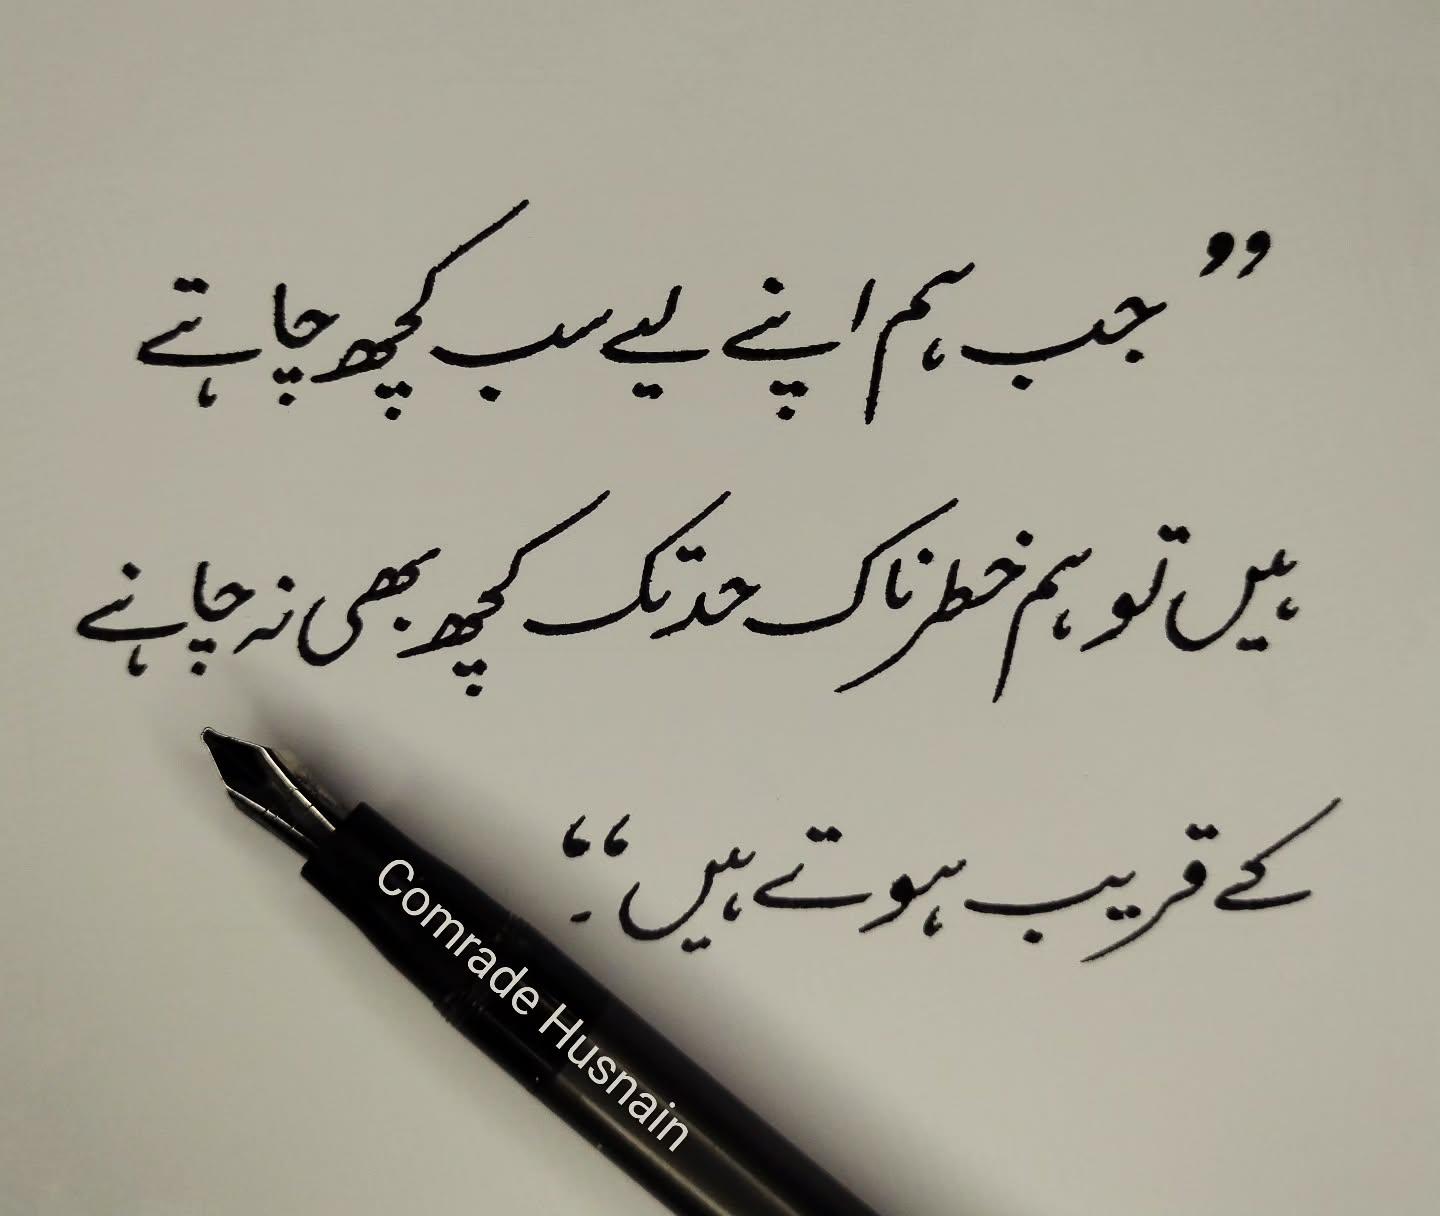 ”جب ہم اپنے لیے سب کچھ چاہتے
ہیں تو ہم خطرناک حد تک کچھ بھی نہ چاہنے
کے قریب ہوتے ہیں۔“
Comrade Husnain